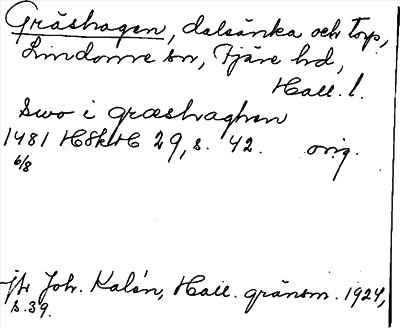 Gräshagen, dalsänka och torp,
Lindome sn, Fjäre hd,
Hall. l.
swo i græshaghen
1481 HSkH 29, s. 42. orig.
6/8
jfr Joh. Kalén, Hall. gränsm. 1924,
s. 39.